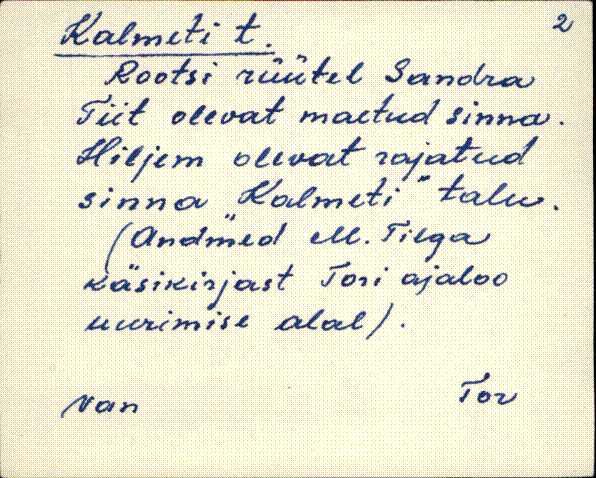 2
Kalmeti t.
Rootsi rüütel Sandra
Tiit olevat maetud sinna.
Hiljem olevat rajatud
sinna „Kalmeti" talu.
(Andmed M. Tilga
käsikirjast Tori ajaloo
uurimise alal).
Van Tor